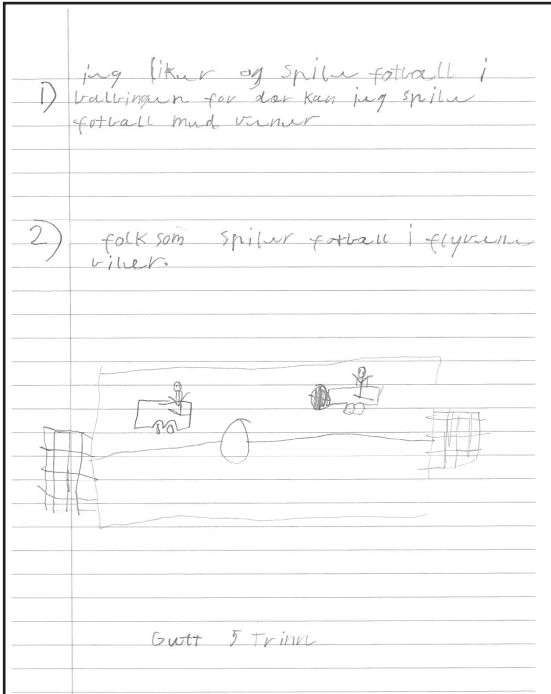 jeg liker og spile fotball i
1) ballbingen for der kan jeg spile
fotball med vener
2) folk som spiler fotball i flyvene
biler.
Gutt 5 Trinn